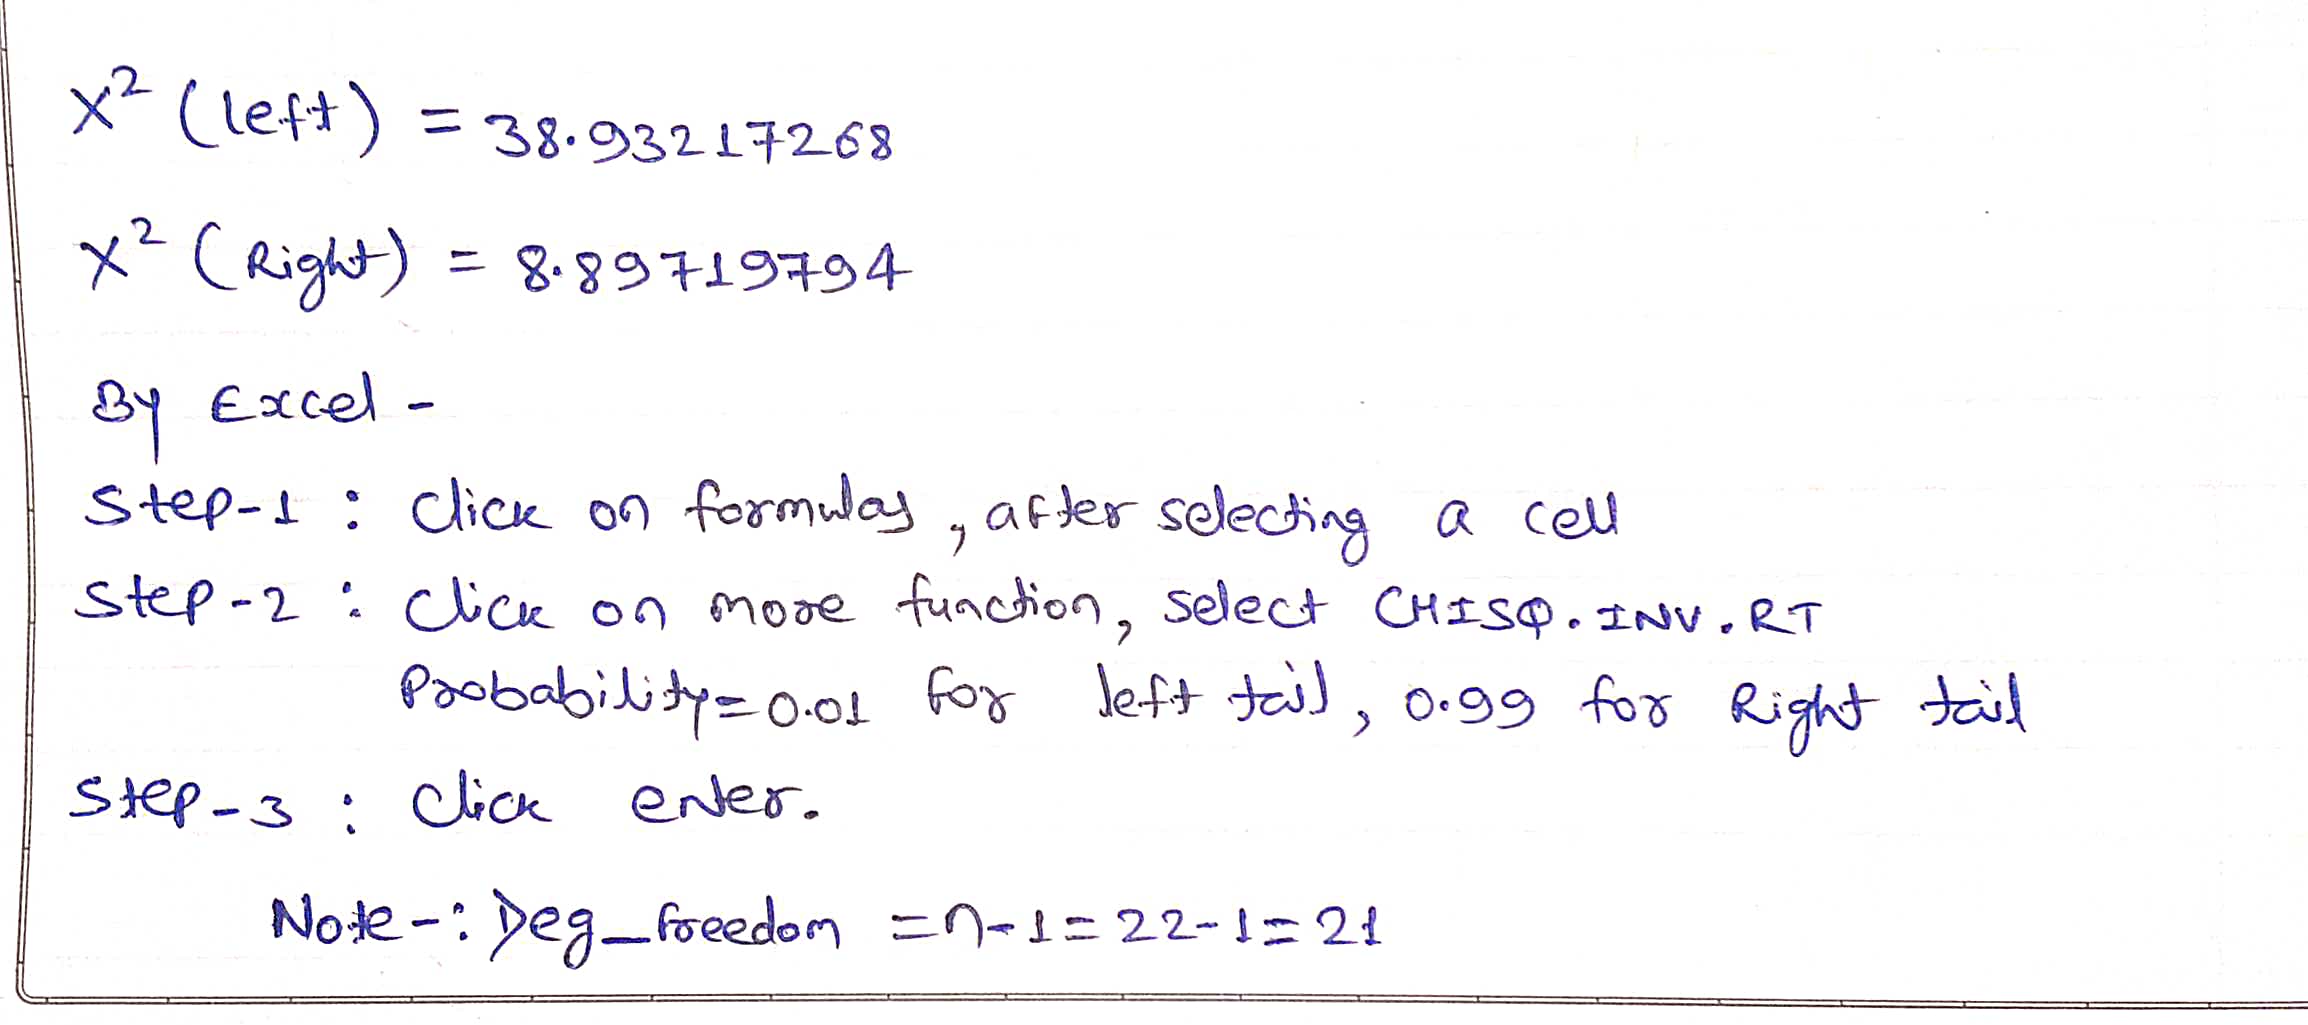 X² (left) = 38.93217268
X² (Right) = 8.89719794
By Excel -
Step-1 : Click on formulas, after selecting a cell
Step-2 : Click on more function, select CHISQ.INV.RT
Probability=0.01 for left tail, 0.99 for Right tail
Step-3 : Click enter.
Note-: Deg_freedom = n-1 = 22-1 = 21